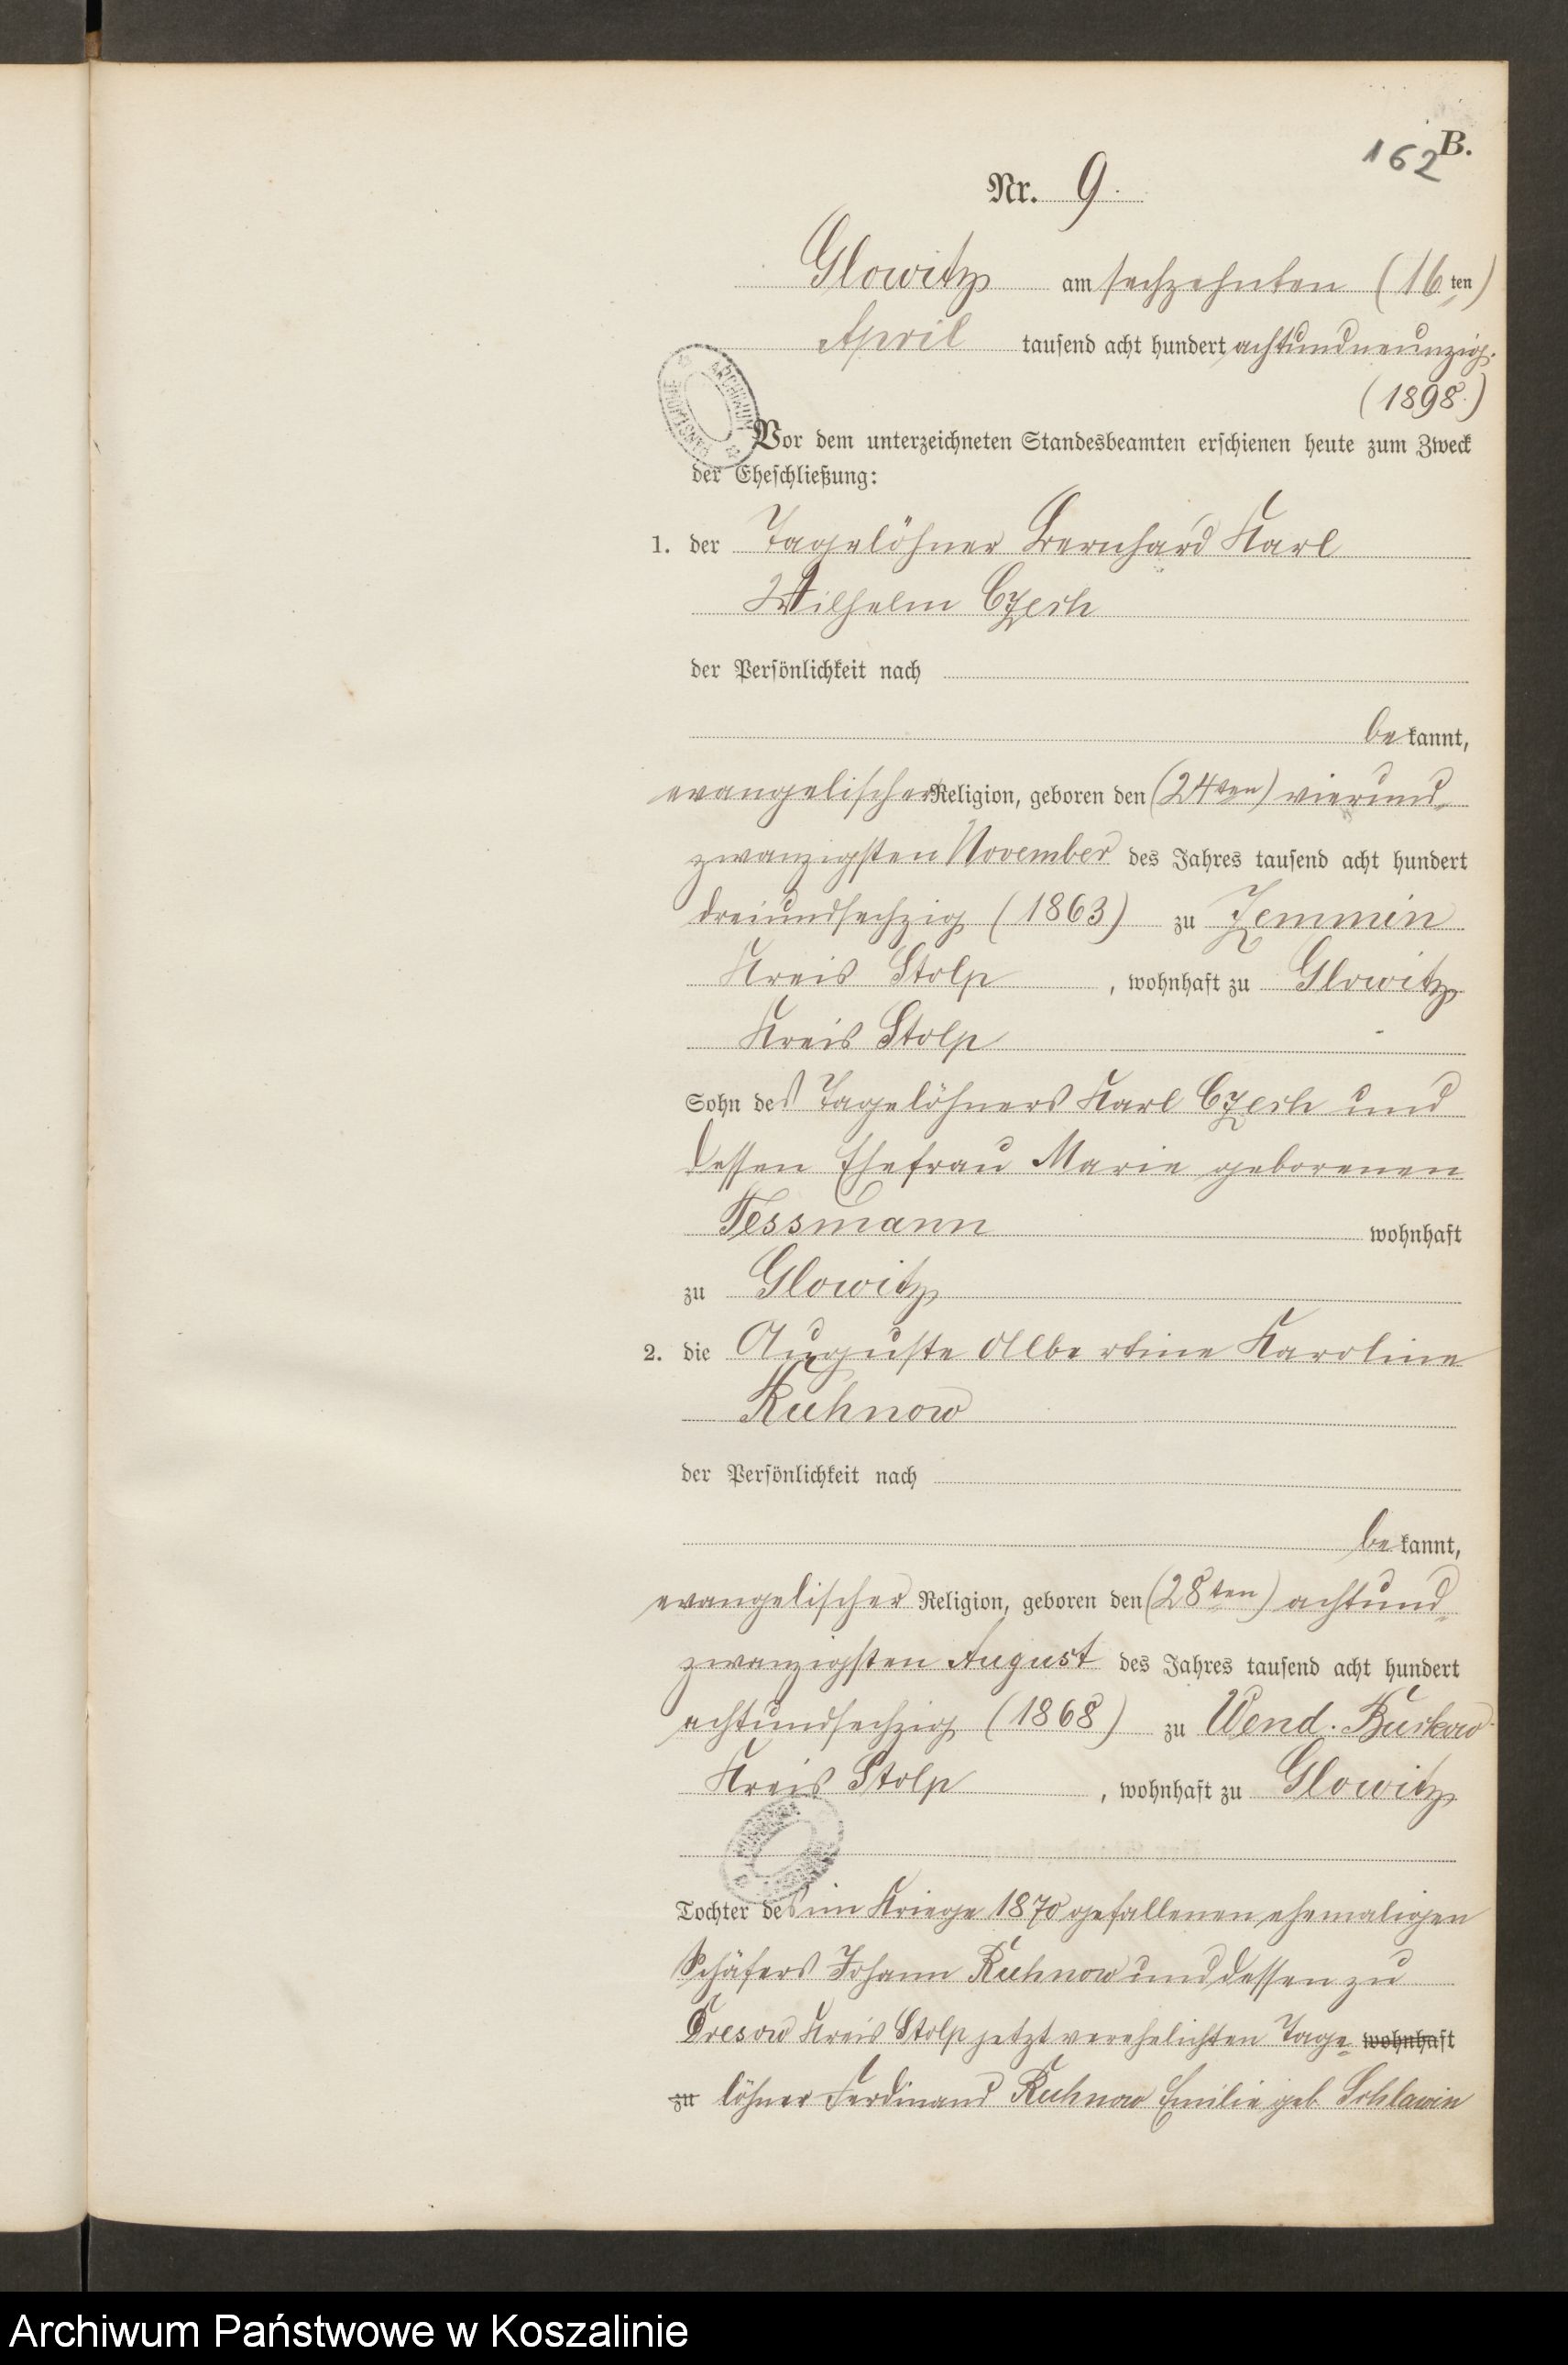 B.
162
Nr. 9.
Glowitz am sechzehnten (16 ten)
April tausend acht hundert achtundneunzig.
(1898.)
Vor dem unterzeichneten Standesbeamten erschienen heute zum Zweck
der Eheschließung:
1. der Tagelöhner Bernhard Karl
Wilhelm Czech
der Persönlichkeit nach
bekannt,
evangelischer Religion, geboren den (24ten) vierund-
zwanzigsten November des Jahres tausend acht hundert
dreiundsechzig (1863) zu Zemmin
Kreis Stolp, wohnhaft zu Glowitz
Kreis Stolp
Sohn des Tagelöhners Karl Czech und
dessen Ehefrau Marie geborenen
Tessmann wohnhaft
zu Glowitz
2. die Auguste Albertine Karoline
Kuhnow
der Persönlichkeit nach
bekannt,
evangelischer Religion, geboren den (28ten) achtund-
zwanzigsten August des Jahres tausend acht hundert
achtundsechzig (1868) zu Wend. Buckow
Kreis Stolp, wohnhaft zu Glowitz
Tochter des im Kriege 1870 gefallenen ehemaligen
Schäfers Johann Kuhnow und dessen zu
Dresow Kreis Stolp jetzt verehelichten Tage- wohnhaft
zu löhner Ferdinand Kuhnow Emilie geb. Schlawin
Archiwum Państwowe w Koszalinie